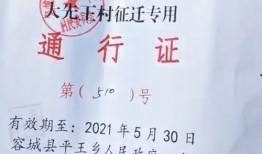 大先王村征迁专用
通行证
第(510)号
有效期至：2021年5月30
容城县平王乡人民政府